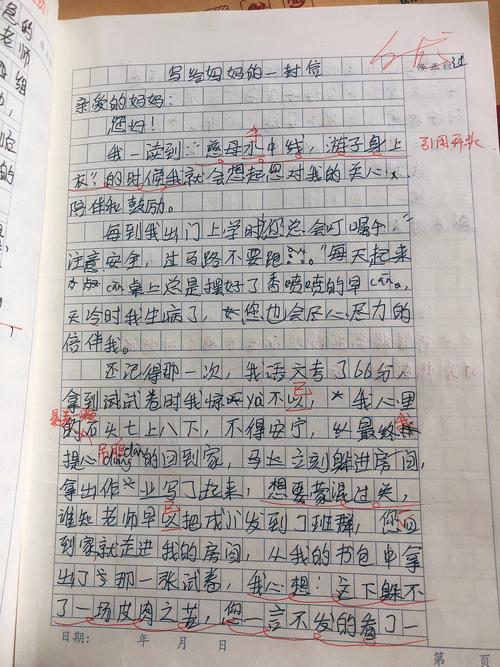 写给妈妈的一封信
亲爱的妈妈:
您好!
我一读到:"慈母水中线,游子身上
手
衣"的时候我就会想起您对我的关心、
引用开头
陪伴和鼓励。
每到我出门上学时您总会叮嘱
注意安全,过马路不要跑。"每天起来
cān桌上总是摆好了香喷喷的早cān。
天冷时我生病了,您也会尽心尽力的
倍伴我。
还记得那一次,我语文考了66分,
拿到试卷时我惊yà不以,我心里
已
石头七上八下,不得安宁,最终
提心diàn的回到家,马上立刻躲进房间,
吊胆
拿出作业写了起来,想要蒙混过关,
谁知老师早以把成发到了班群,您回
到家就走进我的房间,从我的书包中拿
出了那一张试卷,我心想:这下躲不
了一场皮肉之苦,您一言不发的看了一
日期: 年 月 日
第 页
老师
组
的